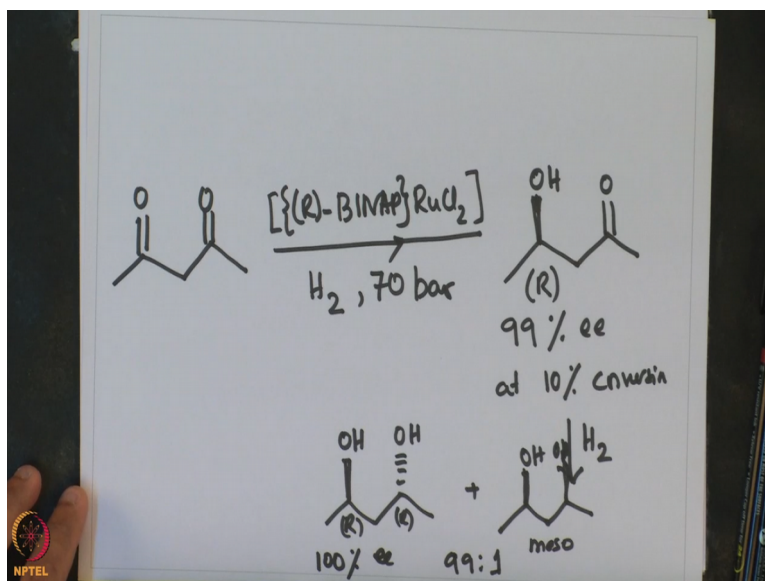 O O
[{(R)-BINAP}RuCl2]
H2, 70 bar
OH O
(R)
99% ee
at 10% cnversin
H2
OH OH
(R) (R)
100% ee
+
99:1
OH
meso
NPTEL